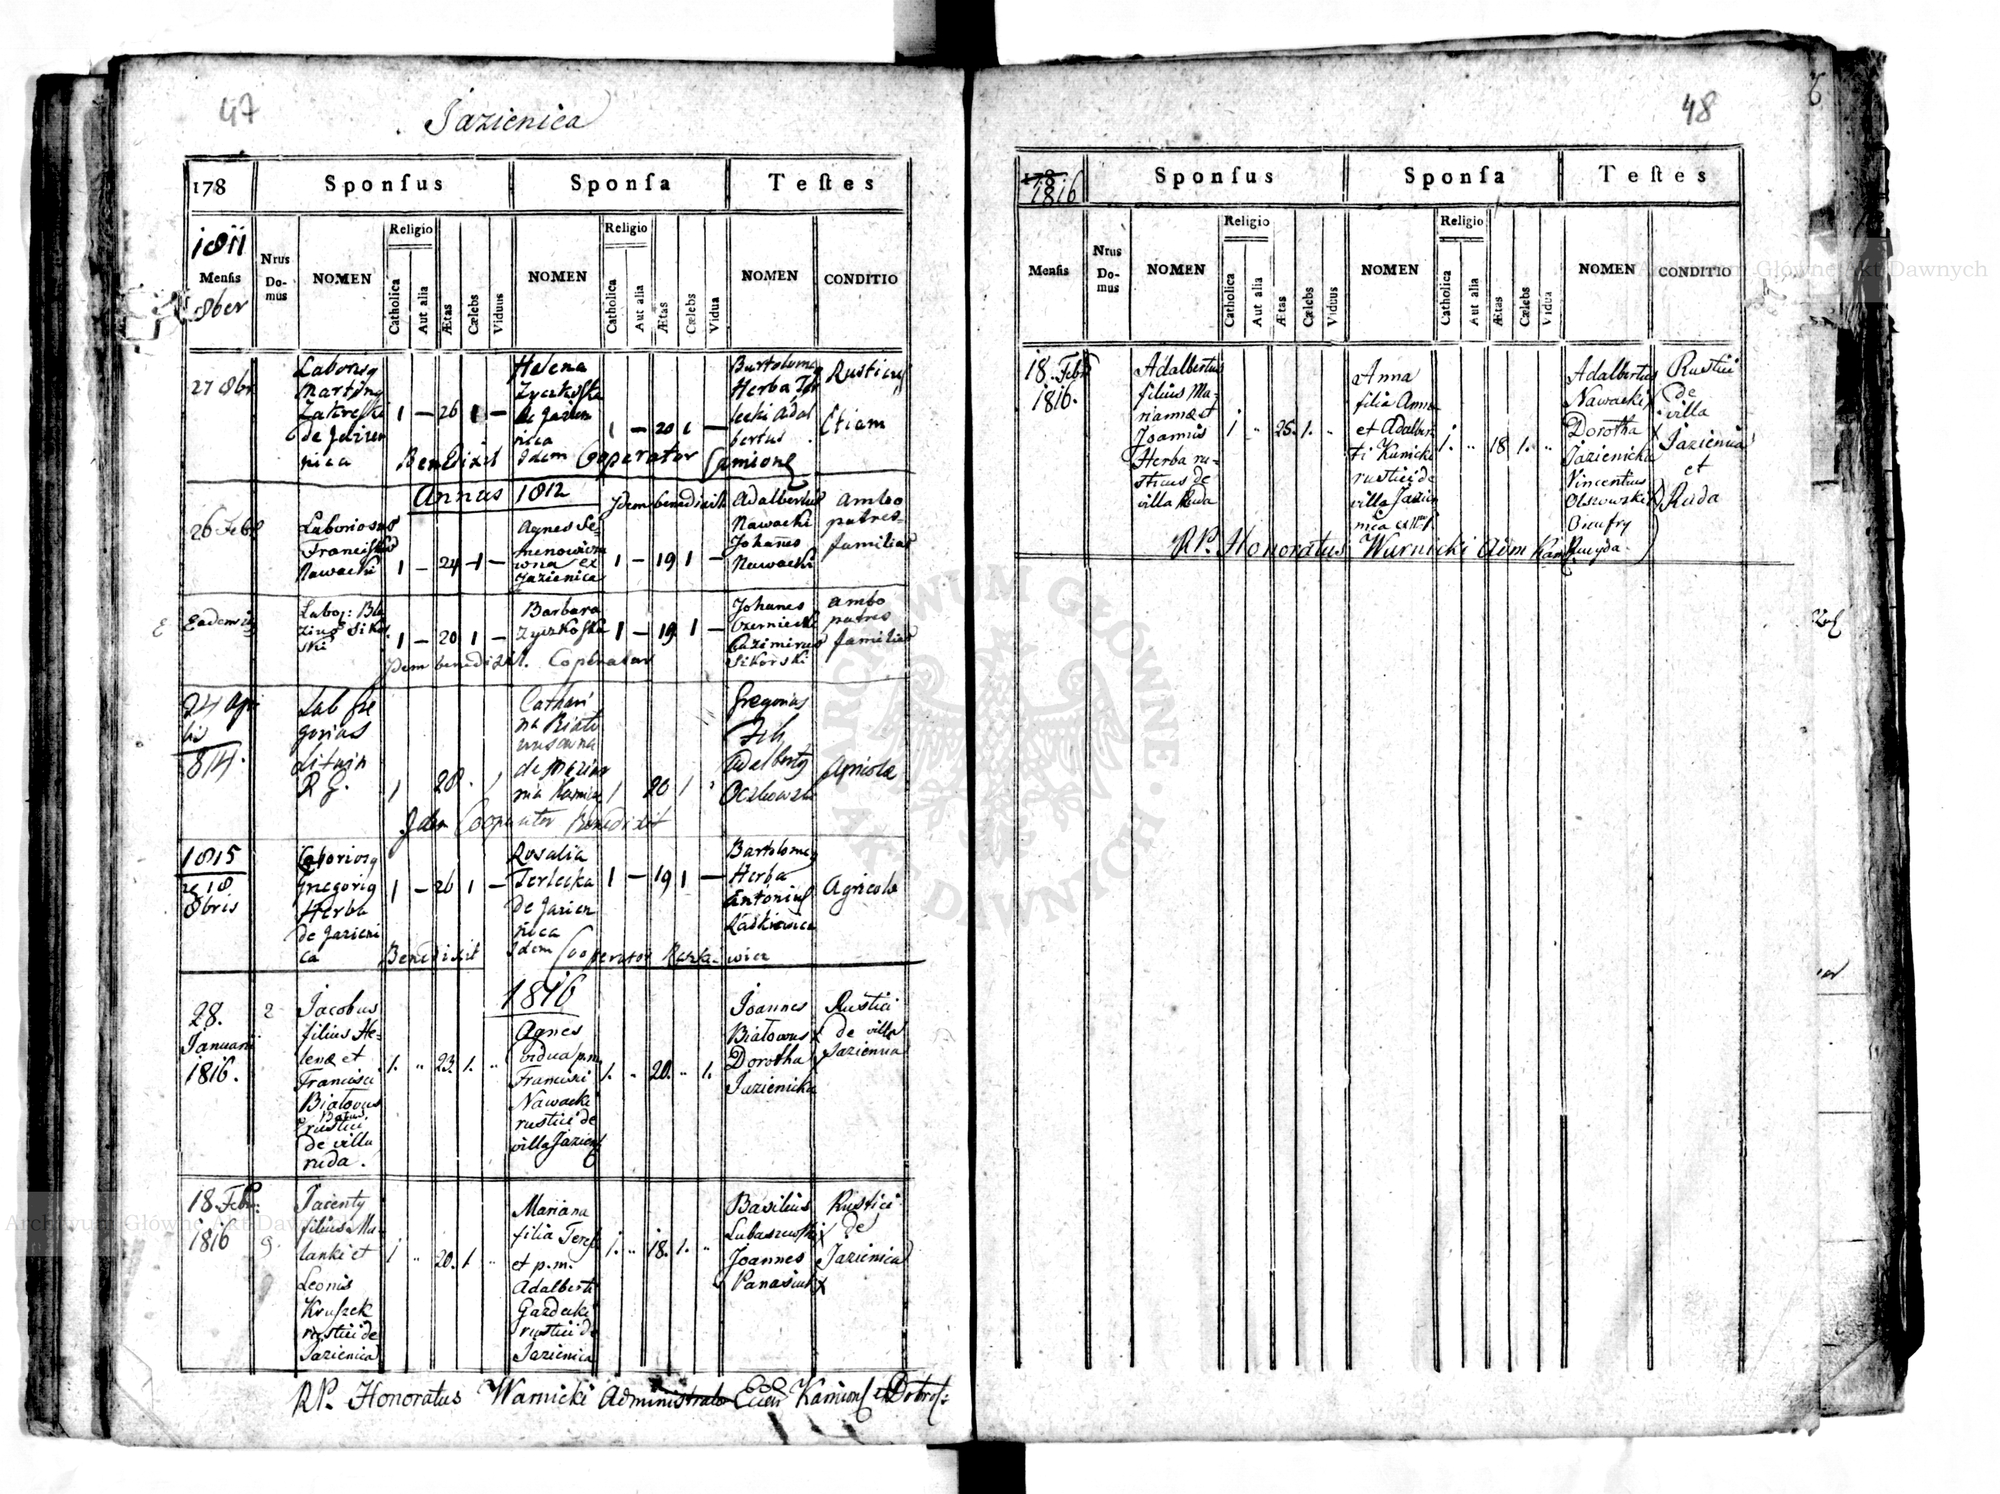 47
Jazienica
178
Sponsus
Sponsa
Testes
1811
Mensis
8ber
Nrus Domus
NOMEN
Religio
Catholica
Aut alia
Ætas
Cælebs
Viduus
NOMEN
Religio
Catholica
Aut alia
Ætas
Cælebs
Vidua
NOMEN
CONDITIO
27 8br
Martyng
de Jazien
nica
1 — 26 1 —
Helena
Zyczkoska
de Jazien
nica
1 — 20 1 —
Herba
Adal
bertus
Rusticus
Etiam
Benedixit Idem Cooperator
Annus 1812
Idem benedixit
26 Feb
Laboriosus
Franciscus
Nawacki
1 — 24 — 1 —
Agnes Se
menowiczo
wna ex
Jazienica
1 — 19 1 —
Adalbertus
Nawacki
Johannes
Nawacki
ambo
patres
familias
Eadem
Labor: Bla
Sikor
ski
1 — 20 1 —
Barbara
Zyczkoska
1 — 19 1 —
Johanes
Czerniecki
Cazimirus
Sikorski
ambo
patres
familias
Idem benedixit. Coperator
24 Apri
lis
814.
Lab Gre
gorius
Litwin
R G.
1 28. 1
Cathari
na Biało
wusowna
de
1 20 1
Gregorius
Adalbertg
Agricola
Idem Cooperator Benedixit
1815
18
8bris
Gregorig
Herba
de Jazieni
ca
1 — 26 1 —
Rosalia
Terlecka
de Jazien
nica
1 — 19 1 —
Bartolomeg
Herba
Antonius
Agricola
Benedixit Idem Cooperator
1816
28.
Januarii
1816.
2
Jacobus
filius He-
lenæ et
Francisci
Białowus
rustici
de villa
ruda.
1. „ 23. 1. „
Agnes
vidua p.m.
Francisci
Nawacki
rustici de
villa Jazieni
1. „ 20. „ 1.
Joannes
Białowus x
Dorotha
Jazienicka
Rustici
de villa
Jazienica
18. Febr:
1816
9.
Jacenty
filius Ma-
lanki et
Leonis
Kruszek
rustici de
Jazienica
1 „ 20. 1 „
Mariana
filia Teresæ
et p.m.
Adalberti
Gazdecki
rustici de
Jazienica
1. „ 18. 1. „
Basilius
Lubaszewski x
Joannes
Panasiuk x
Rustici
de
Jazienica
RP. Honoratus Warnicki Administrator Kamion et Dobros:
48
178
1816
Sponsus
Sponsa
Testes
Mensis
Nrus Domus
NOMEN
Religio
Catholica
Aut alia
Ætas
Cælebs
Viduus
NOMEN
Religio
Catholica
Aut alia
Ætas
Cælebs
Vidua
NOMEN
CONDITIO
18. Febr
1816.
Adalbertus
filius Ma-
riannæ et
Joannis
Herba ru-
sticus de
villa Ruda
1 „ 25. 1. „
Anna
filia Annæ
et Adalber
ti Kunicki
rustici de
villa Jazien
1. „ 18 1. „
Adalbertus
Nawacki x
Dorotha x
Jazienicka
Vincentius
Olszowski x
Onufry
Rustici
de
villa
Jazienica
et
Ruda
RP. Honoratus Warnicki Adm Kam
Archiwum Główne Akt Dawnych
Archiwum Główne Akt Dawnych
ARCHIWUM GŁÓWNE AKT DAWNYCH